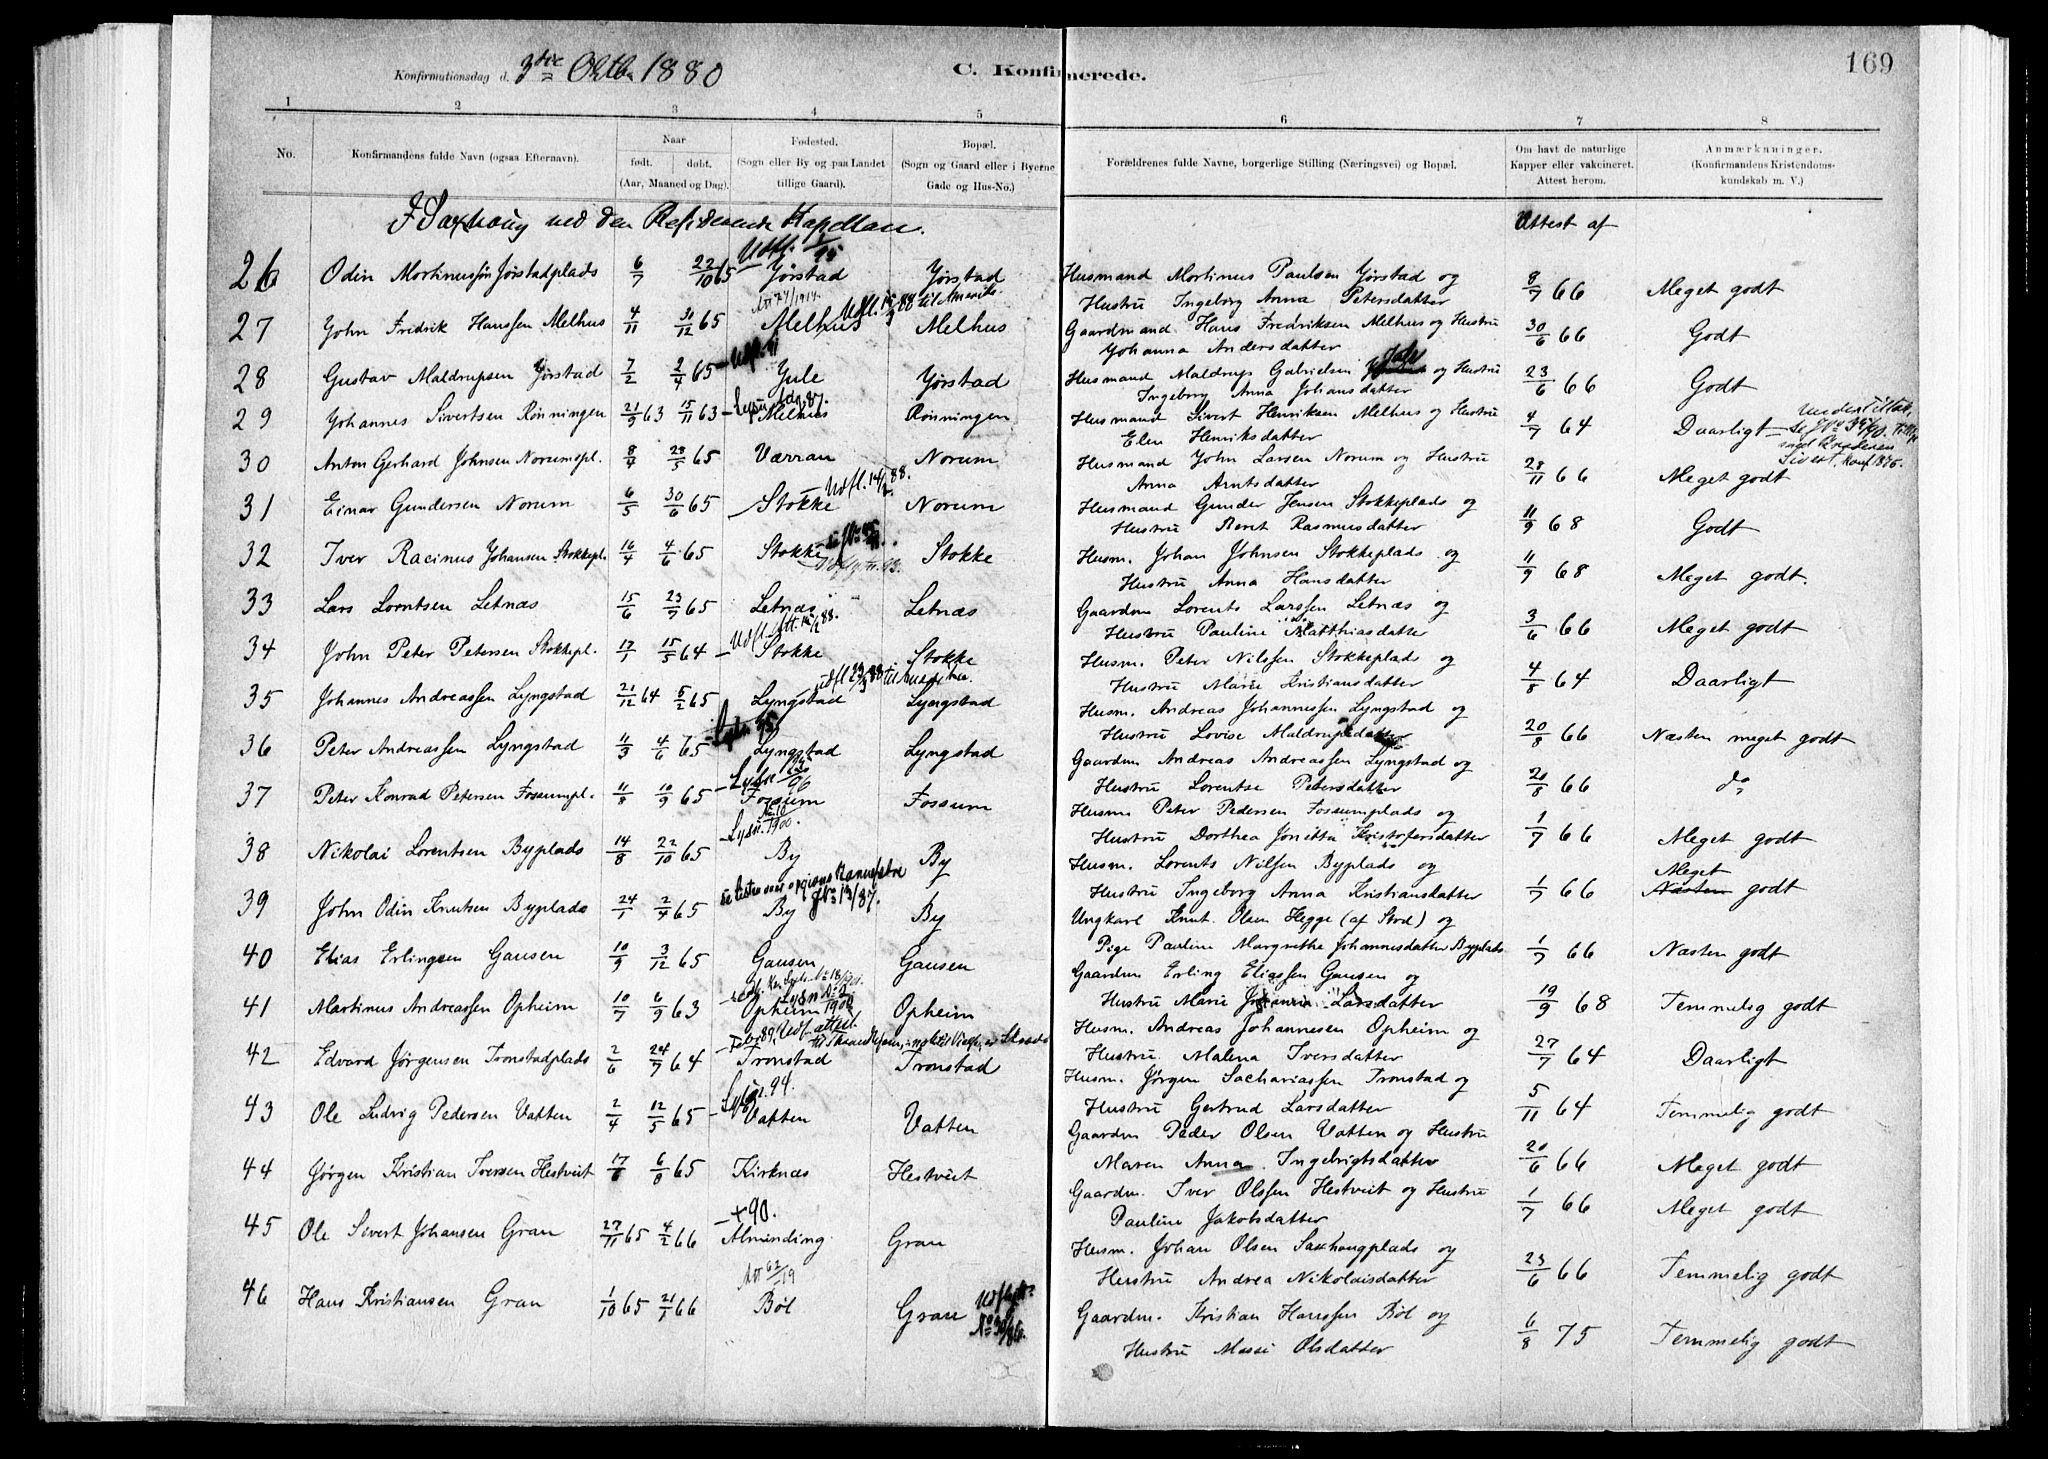 Konfirmationsdag d. 3die Oktbr 1880
C. Konfirmerede.
169
1 2 3 4 5 6 7 8
No.
Konfirmandens fulde Navn (ogsaa Efternavn).
Naar
født. døbt.
(Aar, Maaned og Dag).
Fødested.
(Sogn eller By og paa Landet
tillige Gaard).
Bopæl.
(Sogn og Gaard eller i Byerne
Gade og Hus-No.)
Forældrenes fulde Navne, borgerlige Stilling (Næringsvei) og Bopæl.
Om havt de naturlige
Kapper eller vakcineret.
Attest herom.
Anmærkninger.
(Konfirmandens Kristendoms-
kundskab m. V.)
I Saxhaug ved den Residerende Kapellan.
Attest af
26 Odin Mortinussøn Jørstadplads 6/7 22/10 65 Jørstad Jørstad Husmand Mortinus Paulsen Jørstad og 8/7 66 Meget godt
Hustru Ingeborg Anna Petersdatter
27 John Fredrik Hanssen Melhus 4/11 31/12 65 Melhus Udfl. 15/3 88 til Amerika. Melhus Gaardmand Hans Fredriksen Melhus og Hustru 30/6 66 Godt
Johanna Andersdatter
28 Gustav Maldrupsen Jørstad 7/2 2/4 65 Jule Jørstad Husmand Maldrup Gabrielsen Jule og Hustru 23/6 66 Godt
Ingeborg Anna Johansdatter
29 Johannes Sivertsen Rønningen 21/9 63 15/11 63 Melhus Rønningen Husmand Sivert Henriksen Melhus og Hustru 4/7 64 Daarligt
Elen Henriksdatter
Sivert, konf 1875.
30 Anton Gerhard Johnsen Norumspl. 8/4 28/5 65 Værran Norum Husmand John Larsen Norum og Hustru 28/11 66 Meget godt
Anna Arntsdatter
31 Einar Gundersen Norum 6/5 30/6 65 Stokke Norum Husmand Gunder Jensen Stokkeplads og 11/9 68 Godt
Hustru Beret Rasmusdatter
32 Iver Racinus Johansen Stokkepl. 16/4 4/6 65 Stokke Stokke Husm. Johan Johnsen Stokkeplads og 11/9 68 Meget godt.
Hustru Anna Hansdatter
33 Lars Lorntsen Letnæs 15/6 23/7 65 Letnæs Letnæs Gaardm Lorents Larssen Letnæs og 3/6 66 Meget godt
Hustru Pauline Matthiasdatter
34 John Peter Petersen Stokkepl. 17/1 15/5 64 Stokke Stokke Husm. Peter Nilssen Stokkeplads og 4/8 64 Daarligt
Hustru Marie Kristiansdatter
35 Johannes Andreassen Lyngstad 21/12 64 5/2 65 Lyngstad Lyngstad Husm. Andreas Johannessen Lyngstad og 20/8 66 Næsten meget godt
Hustru Lovise Maldrupsdatter
36 Peter Andreassen Lyngstad 11/3 4/6 65 Lyngstad Lyngstad Gaardm Andreas Andreassen Lyngstad og 20/8 66 do
Hustru Lorentse Petersdatter
37 Peter Konrad Petersen Fossumpl. 11/8 10/9 65 Fossum Fossum Husm Peter Pedersen Fossumplads og 1/7 66 Meget godt
Hustru Dorthea Jonetta Kristofersdatter
38 Nikolai Lorentsen Byplads 14/8 22/10 65 By By Husm. Lorents Nilsen Byplads og 1/7 66 Meget godt
Hustru Ingeborg Anna Kristiansdatter
39 John Odin Knutsen Byplads 24/1 2/4 65 By By Ungkarl Knut Olsen Hegge (af Stod) og 1/7 66 Næsten godt
Pige Pauline Margrethe Johannesdatter Byplads
40 Elias Erlingsen Gausen 10/9 3/12 65 Gausen Gausen Gaardm Erling Eliassen Gausen og 19/9 68 Temmelig godt
Hustru Marie Johanna Larsdatter
41 Martinus Andreassen Opheim 10/7 6/9 63 Opheim Opheim Husm. Andreas Johannesen Opheim og 27/7 64 Daarligt
Hustru Malena Iversdatter
42 Edvard Jørgensen Tronstadplads 2/6 24/7 64 Tronstad Tronstad Husm. Jørgen Sachariassen Tronstad og 5/11 64 Temmelig godt
Hustru Gertrud Larsdatter
43 Ole Ludvig Pedersen Vatten 2/4 12/5 65 Vatten Vatten Gaardm Peder Olsen Vatten og Hustru 20/6 66 Meget godt
Maren Anna Ingebrigtsdatter
44 Jørgen Kristian Iversen Hestveit 17/6 6/8 65 Kirknæs Hestveit Gaardm. Iver Olssen Hestveit og Hustru 1/7 66 Meget godt
Pauline Jakobsdatter
45 Ole Sivert Johansen Gran 27/11 65 4/2 66 +90. Almending Gran Husm. Johan Olsen Saxhaugplads og 23/6 66 Temmelig godt
Hustru Andrea Nikolaisdatter
46 Hans Kristiansen Gran 1/10 65 21/1 66 Att 62/19 Bøl Gran Gaardm. Kristian Hanssen Bøl og 6/8 75 Temmelig godt
Hustru Massi Olsdatter